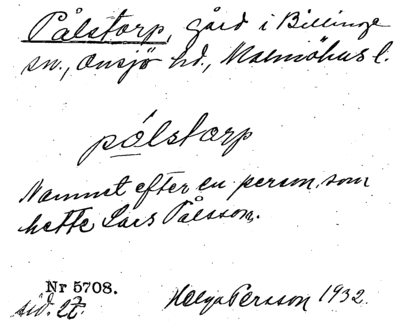 Pålstorp, gård i Billinge
sn., Onsjö hd., Malmöhus l.
pålstorp
Namnet efter en person, som
hette Lars Pålsson.
Nr 5708.
sid. 27.
Helga Persson 1932.